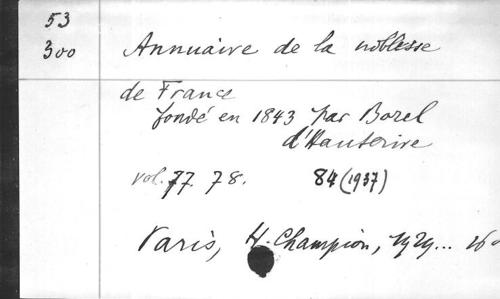 53
300
Annuaire de la noblesse
de France
fondé en 1843 par Borel
d'Hauterive
vol. 77. 78. 84 (1937)
Paris, H. Champion, 1929...